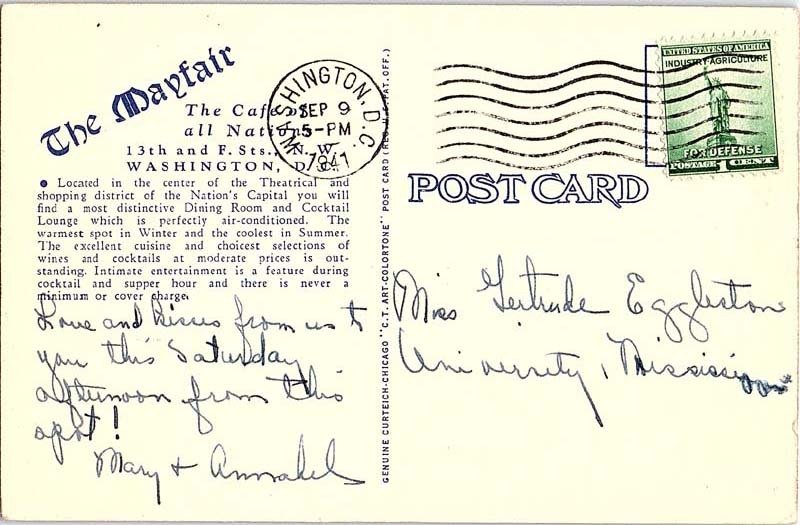 The Mayfair
The Cafe of
all Nations
13th and F. Sts., N. W.
WASHINGTON, D. C.
● Located in the center of the Theatrical and
shopping district of the Nation's Capital you will
find a most distinctive Dining Room and Cocktail
Lounge which is perfectly air-conditioned. The
warmest spot in Winter and the coolest in Summer.
The excellent cuisine and choicest selections of
wines and cocktails at moderate prices is out-
standing. Intimate entertainment is a feature during
cocktail and supper hour and there is never a
minimum or cover charge.
Love and kisses from us to
you this Saturday
afternoon from this
spot!
Mary + Annabel
GENUINE CURTEICH-CHICAGO "C.T. ART-COLORTONE" POST CARD (REG. U.S. PAT. OFF.)
WASHINGTON, D.C.
SEP 9
5-PM
1941
UNITED STATES OF AMERICA
INDUSTRY·AGRICULTURE
FOR DEFENSE
POSTAGE 1 CENT
POST CARD
Miss Gertrude Eggleston
University, Mississippi